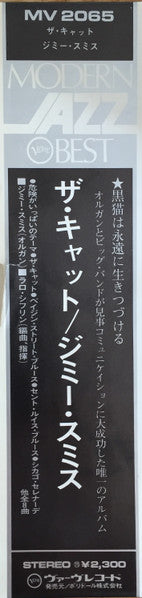 MV 2065
ザ・キャット
ジミー・スミス
MODERN
JAZZ
Verve
BEST
★黒猫は永遠に生きつづける
オルガンとビッグ・バンドが見事コミュニケイションに大成功した唯一のアルバム
ザ・キャット/ジミー・スミス
●危険がいっぱいのテーマ●ザ・キャット●ベイジン・ストリート・ブルース●セント・ルイス・ブルース●シカゴ・セレナーデ
他全8曲
■ジミー・スミス(オルガン) ■ラロ・シフリン(編曲、指揮)
STEREO Ⓢ¥2,300
Verve ヴァーヴ レコード
発売元/ポリドール株式会社